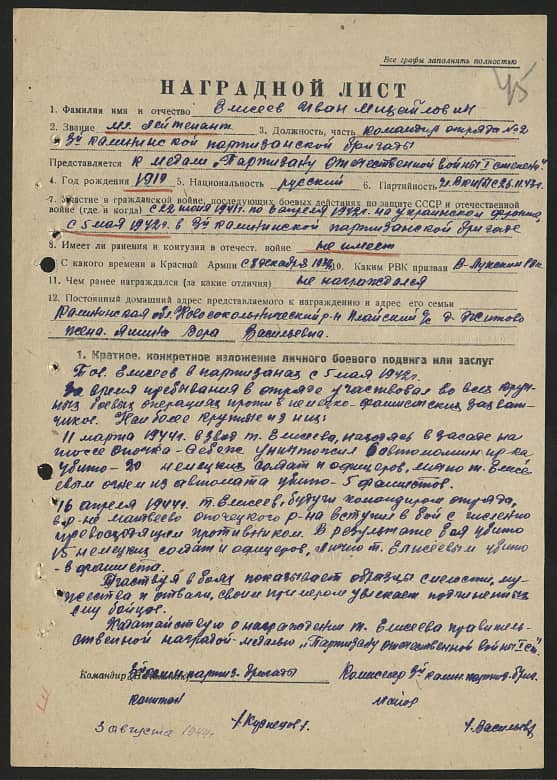 Все графы заполнять полностью
45
НАГРАДНОЙ ЛИСТ
1. Фамилия имя и отчество Елисеев Иван Михайлович
2. Звание мл. лейтенант 3. Должность, часть командир отряда №2
3й калининской партизанской бригады
Представляется к медали „Партизану отечественной войны I степени"
4. Год рождения 1919 5. Национальность русский 6. Партийность
7. Участие в гражданской войне, последующих боевых действиях по защите СССР и отечественной
войне (где и когда) с 22 июня 1941г. по 6 апреля 1942г. на украинском фронте,
с 5 мая 1942г. в 3й калининской партизанской бригаде
8. Имеет ли ранения и контузии в отечест. войне не имеет
9. С какого времени в Красной Армии с 8 декабря 10. Каким РВК призван В-Лукским РВК
11. Чем ранее награждался (за какие отличия) не награждался
12. Постоянный домашний адрес представляемого к награждению и адрес его семьи
Калининская обл. Новосокольнический р-н с/с д.
жена Дора Васильевна.
1. Краткое, конкретное изложение личного боевого подвига или заслуг
Тов. Елисеев в партизанах с 5 мая 1942г.
За время пребывания в отряде участвовал во всех круп-
ных боевых операциях против немецко-фашистских захват-
чиков. Наиболее крупные из них:
11 марта 1944г. взвод т. Елисеева, находясь в засаде на
шоссе Опочка-Себеж уничтожил автомашин пр-ка
убито - 30 немецких солдат и офицеров, лично т. Елисе-
евым огнем из автомата убито - 5 фашистов.
16 апреля 1944г. т. Елисеев, будучи командиром отряда,
в р-не Матвеево опочецкого р-на вступил в бой с численно
превосходящим противником. В результате боя убито
15 немецких солдат и офицеров, лично т. Елисеевым убито
фашиста.
Участвуя в боях показывает образцы смелости, му-
жества и отваги, своим примером увлекает подчиненных
ему бойцов.
Ходатайствую о награждении т. Елисеева правитель-
ственной наградой-медалью „Партизану отечественной войны I ст."
Командир 3й калинин. партиз. бригады Комиссар 3й калин. партиз. бриг.
капитан майор
/Кузнецов/. /Васильев/
3 августа 1944г.